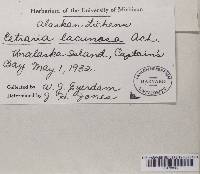 Herbarium of the University of Michigan
Alaskan Lichens
Cetraria lacunosa Ach.
Unalaska Island, Captain's
Bay May 1, 1932.
Collected by W. J. Eyerdam
Determined by G. N. Jones
HARVARD